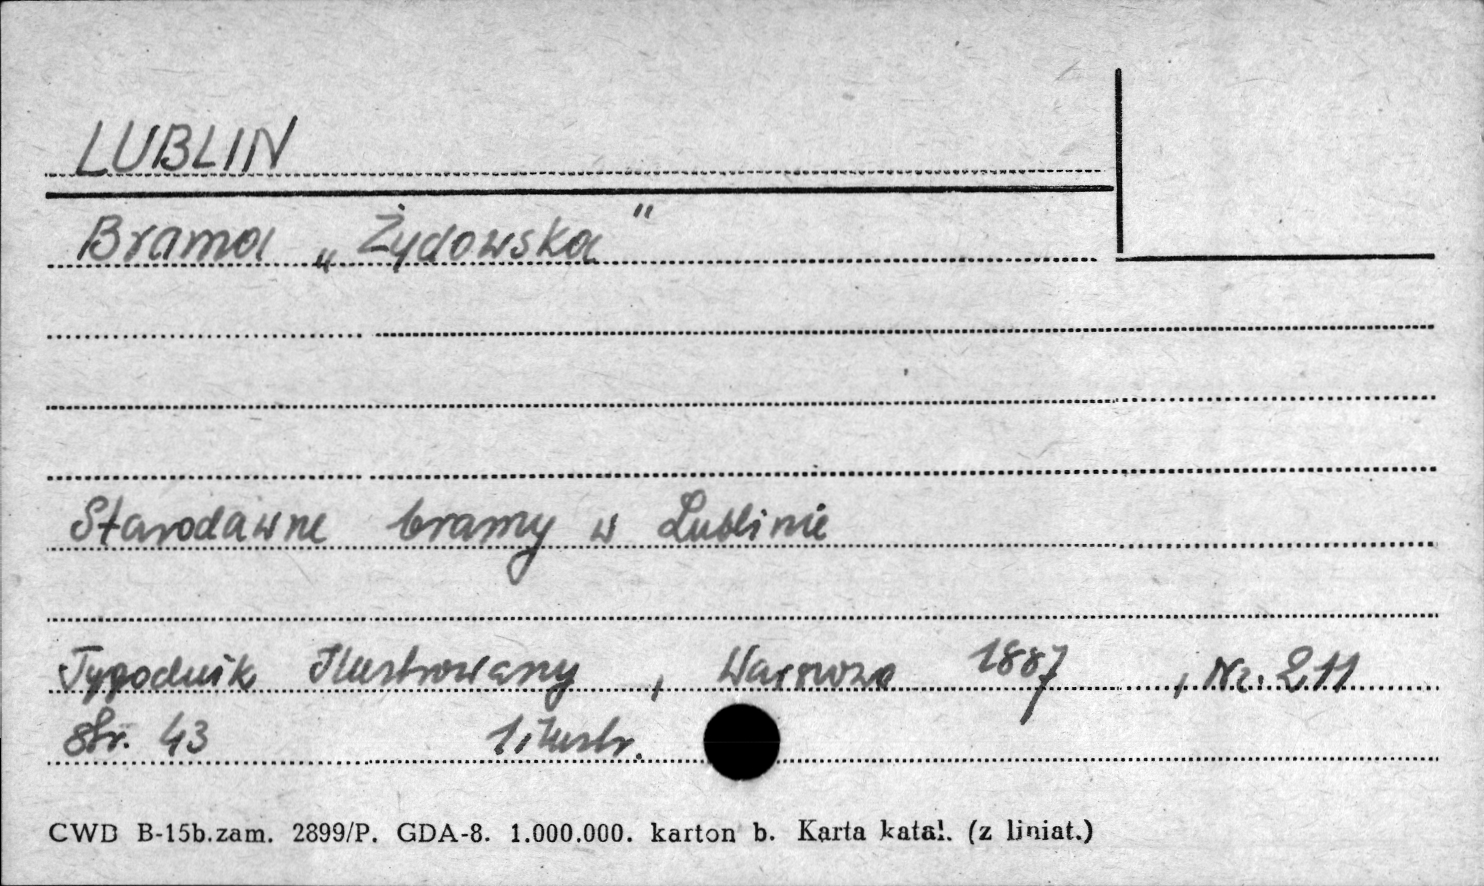 LUBLIN
Brama „Żydowska"
Starodawne bramy w Lublinie
Tygodnik Ilustrowany, Warszawa 1887, Nr. 211
Str. 43 1 ilustr.
CWD B-15b.zam. 2899/P. GDA-8. 1.000.000. karton b. Karta katal. (z liniat.)